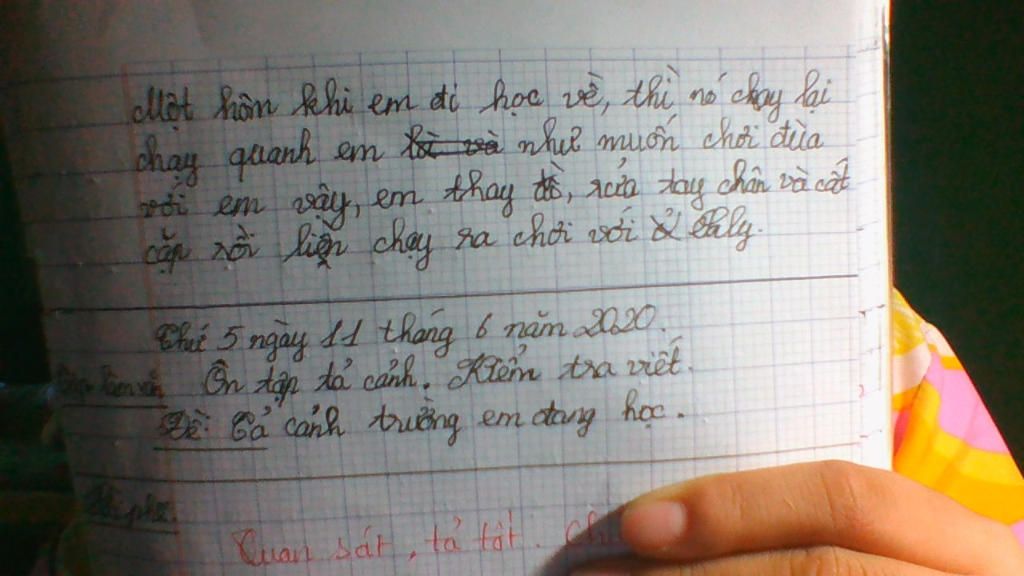 Một hôm khi em đi học về, thì nó chạy lại
chạy quanh em như muốn chơi đùa
với em vậy, em thay đề, rửa tay chân và cất
cặp rồi liền chạy ra chơi với Thly.
Thứ 5 ngày 11 tháng 6 năm 2020.
Ôn tập tả cảnh. Kiểm tra viết.
Đề: Tả cảnh trường em đang học.
Quan sát, tả tốt.